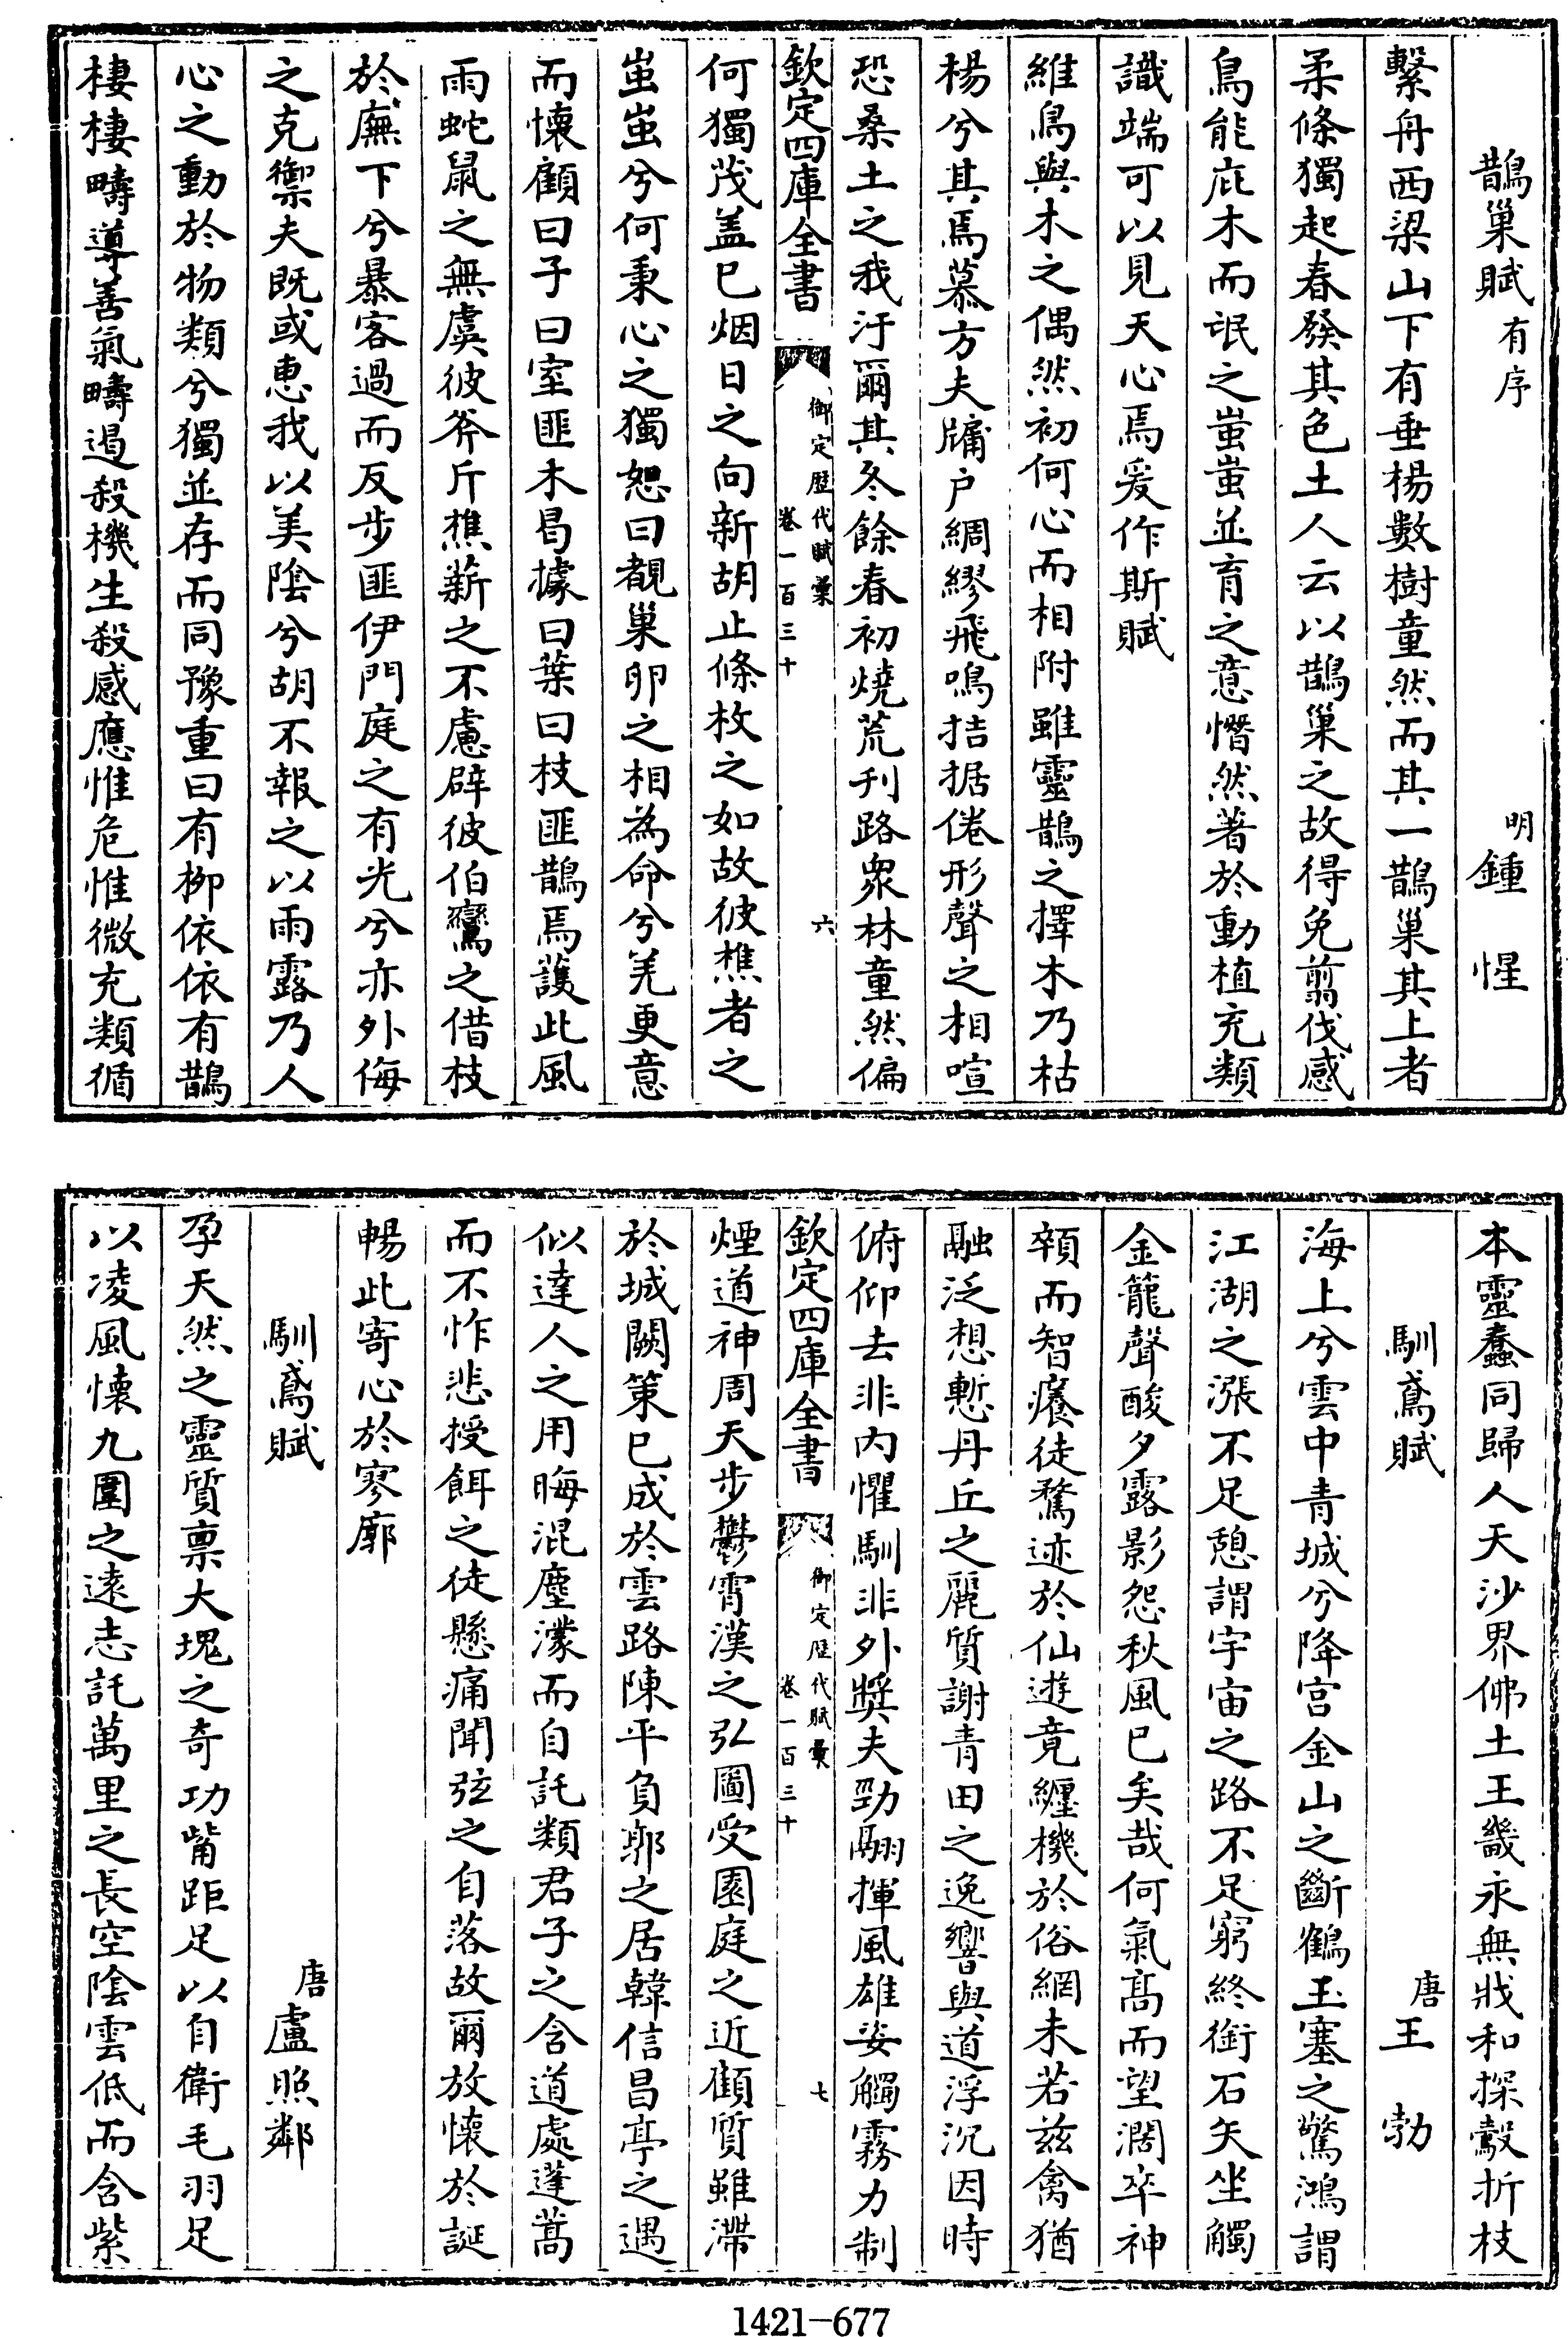 鵲巢賦有序　明鍾惺
繫舟西梁山下有垂楊數樹童然而其一鵲巢其上者
柔條獨起春發其色土人云以鵲巢之故得免翦伐感
鳥能庇木而氓之蚩蚩並育之意憯然著於動植充類
識端可以見天心焉爰作斯賦
維鳥與木之偶然初何心而相附雖靈鵲之擇木乃枯
楊兮其焉慕方夫牖户綢繆飛鳴拮据倦形聲之相喧
恐桑土之我汙爾其冬餘春初燒荒刋路衆林童然偏
欽定四庫全書　御定歷代賦彙卷一百三十　六
何獨茂盖已烟日之向新胡止條枚之如故彼樵者之
蚩蚩兮何秉心之獨恕曰覩巢卵之相為命兮羌更意
而懷顧曰子曰室匪木曷據曰葉曰枝匪鵲焉護此風
雨蛇鼠之無虞彼斧斤樵薪之不慮辟彼伯鸞之借枝
於廡下兮暴客過而反步匪伊門庭之有光兮亦外侮
之克禦夫既或惠我以美陰兮胡不報之以雨露乃人
心之動於物類兮獨並存而同豫重曰有栁依依有鵲
棲棲疇導善氣疇遏殺機生殺感應惟危惟微充類循
本靈蠢同歸人天沙界佛土王畿永無戕和探鷇折枝
馴鳶賦　唐王勃
海上兮雲中青城兮降宫金山之斷鶴玉塞之驚鴻謂
江湖之漲不足憩謂宇宙之路不足窮終銜石矢坐觸
金籠聲酸夕露影怨秋風已矣哉何氣髙而望濶卒神
顇而智癢徒騖迹於仙遊竟纏機於俗網未若兹禽猶
融泛想慙丹丘之麗質謝青田之逸響與道浮沉因時
俯仰去非内懼馴非外奬夫勁翮揮風雄姿觸霧力制
欽定四庫全書　御定歷代賦彙卷一百三十　七
煙道神周天步鬱霄漢之弘圖受園庭之近顧質雖滯
於城闕策已成於雲路陳平負郭之居韓信昌亭之遇
似達人之用晦混塵濛而自託類君子之含道處蓬蒿
而不怍悲授餌之徒懸痛聞弦之自落故爾放懷於誕
暢此寄心於寥廓
馴鳶賦　唐盧照鄰
孕天然之靈質禀大塊之奇功觜距足以自衛毛羽足
以凌風懷九圍之遠志託萬里之長空陰雲低而含紫
1421-677